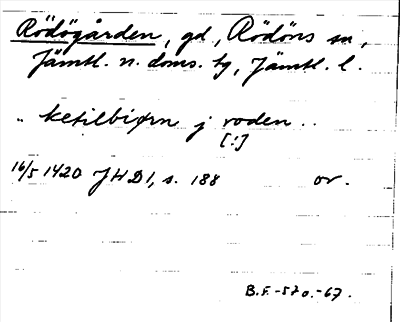 Rödögården, gd, Rödöns sn,
Jämtl. n. doms. tg, Jämtl. l.
.. ketilbiørn j roden ..
[!]
16/5 1420 JHD 1, s. 188 or.
B.F. -57 o. -67.